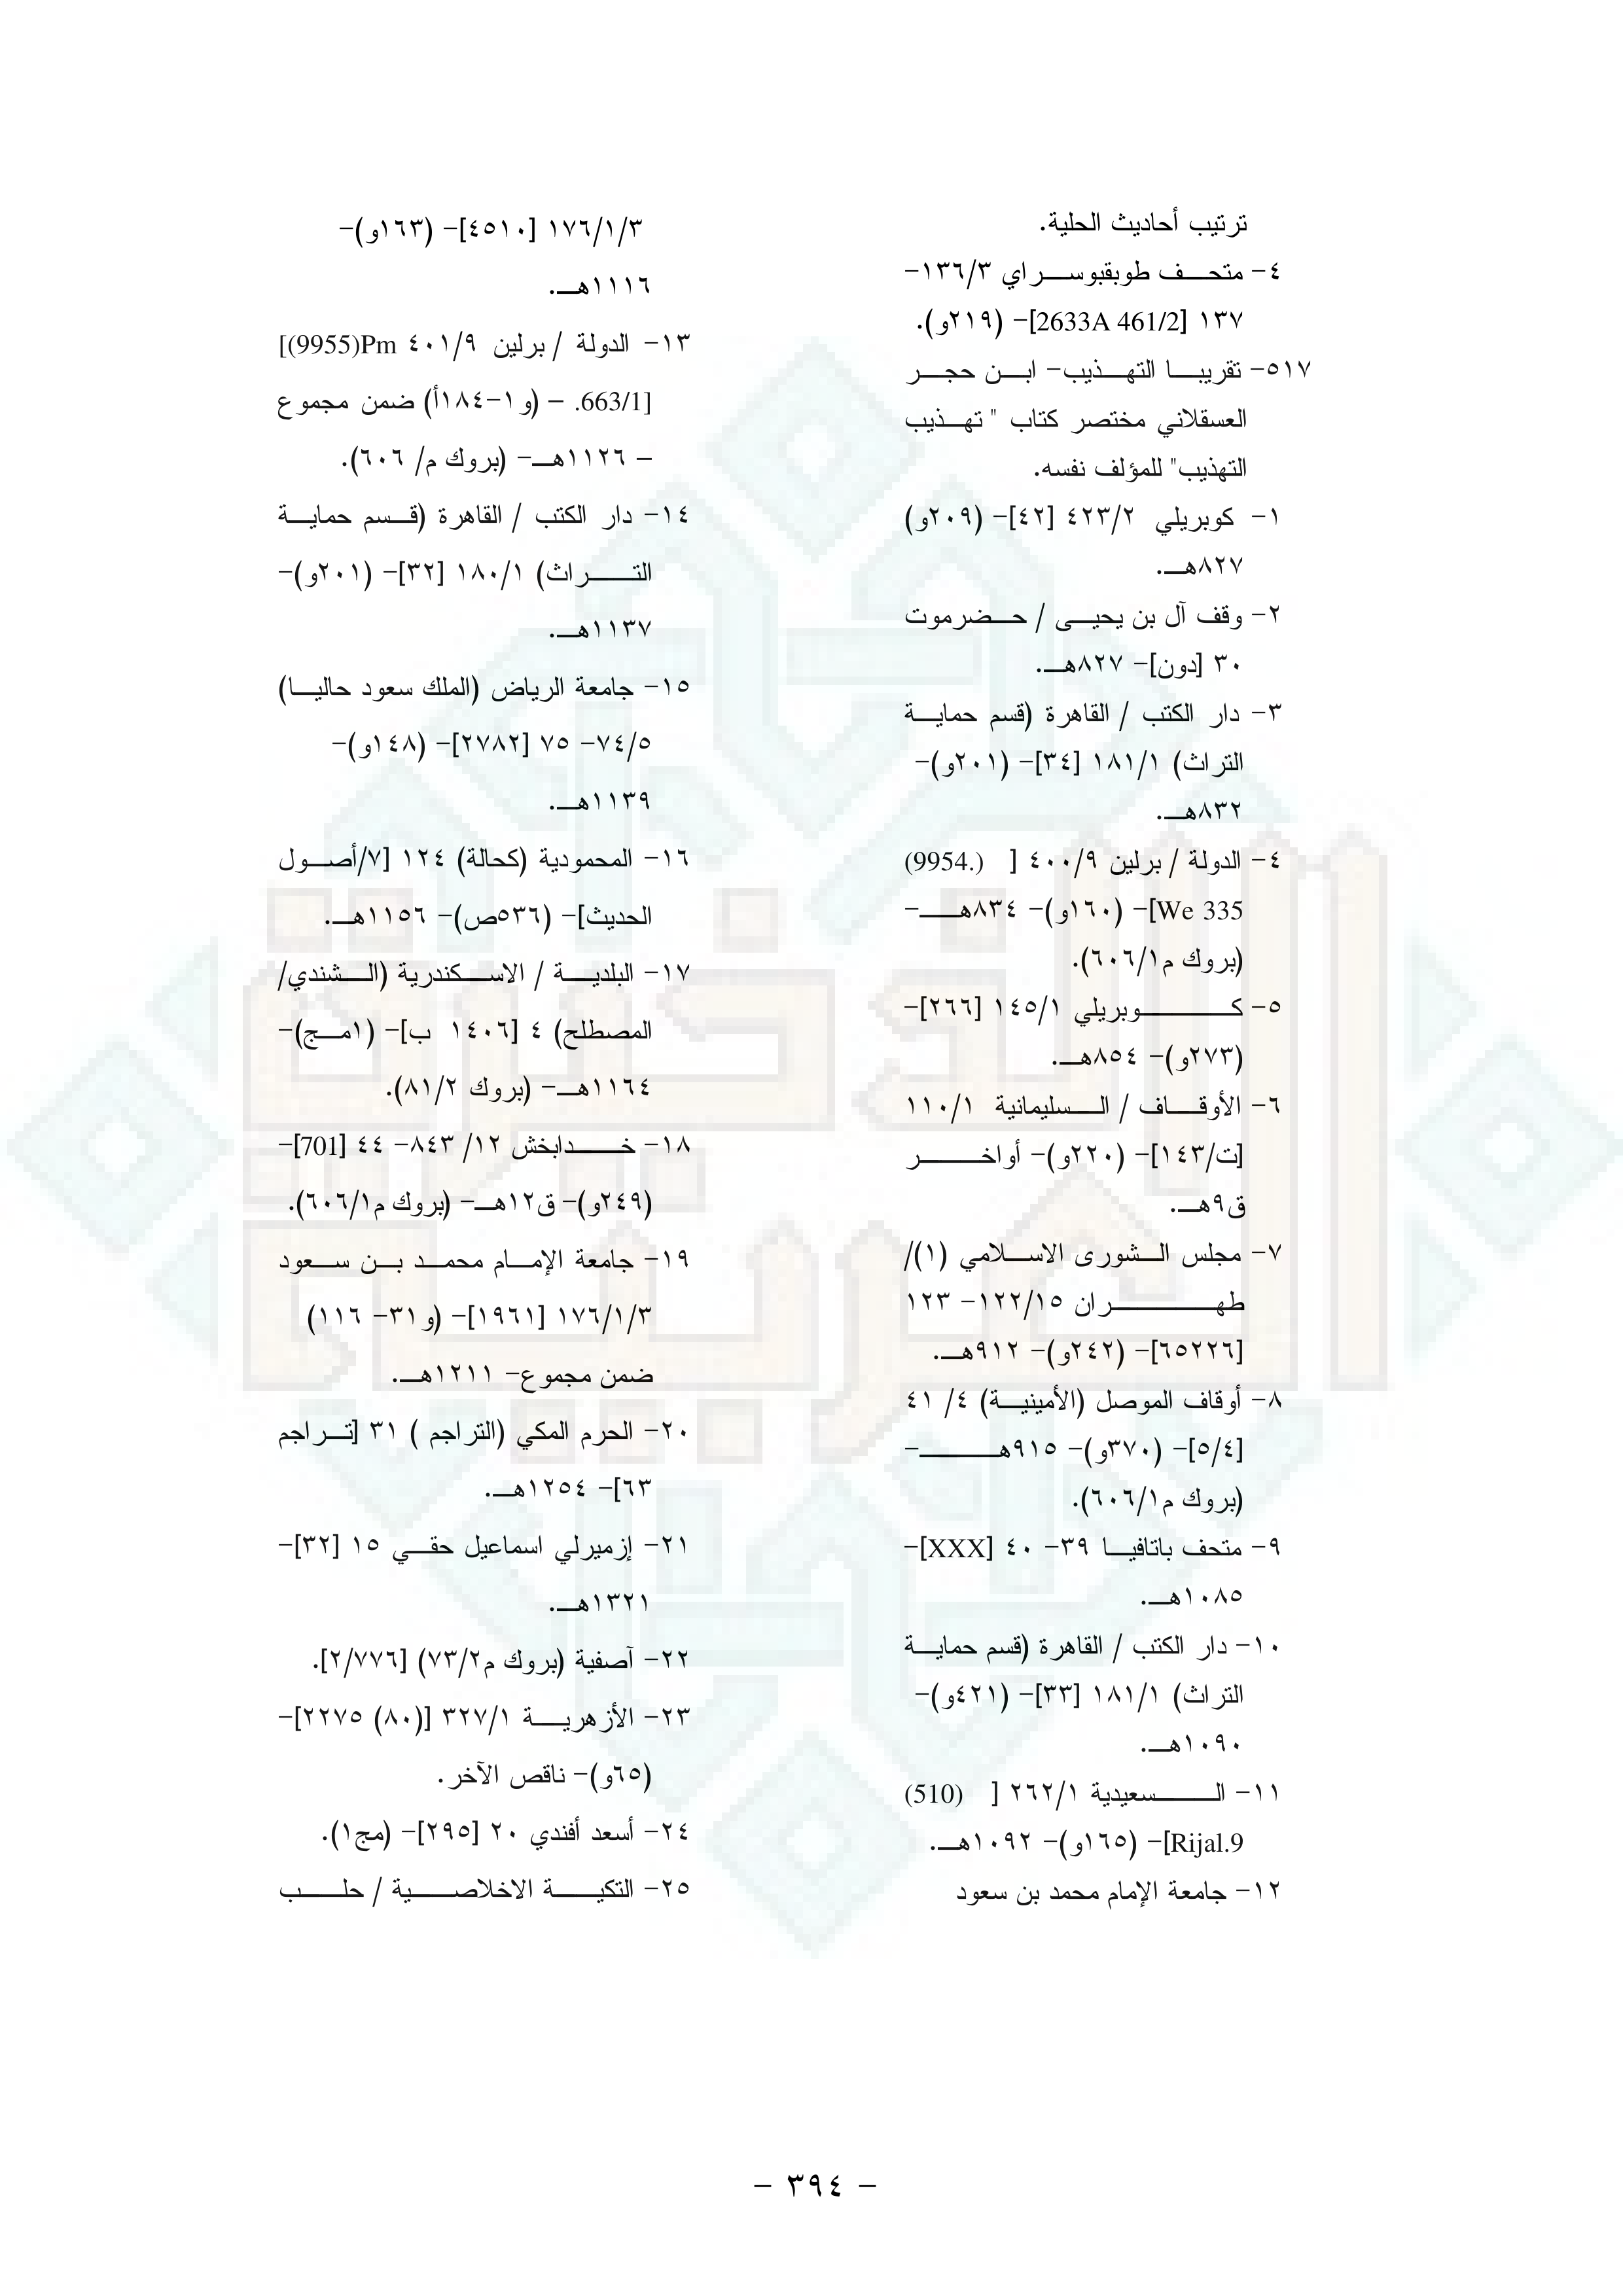 ترتيب أحاديث الحلية.
٤- متحف طوبقبوسراي ١٣٦/٣-
١٣٧ [2633A 461/2]- (٢١٩و).
٥١٧- تقريبا التهذيب- ابن حجر
العسقلاني مختصر كتاب " تهذيب
التهذيب" للمؤلف نفسه.
١- كوبريلي ٤٢٣/٢ [٤٢]- (٢٠٩و)
٨٢٧هـ.
٢- وقف آل بن يحيى / حضرموت
٣٠ [دون]- ٨٢٧هـ.
٣- دار الكتب / القاهرة (قسم حماية
التراث) ١٨١/١ [٣٤]- (٢٠١و)-
٨٣٢هـ.
٤- الدولة / برلين ٤٠٠/٩ [ (9954.)
We 335]- (١٦٠و)- ٨٣٤هـ-
(بروك م٦٠٦/١).
٥- كوبريلي ١٤٥/١ [٢٦٦]-
(٢٧٣و)- ٨٥٤هـ.
٦- الأوقاف / السليمانية ١١٠/١
[ت/١٤٣]- (٢٢٠و)- أواخر
ق٩هـ.
٧- مجلس الشورى الاسلامي (١)/
طهران ١٢٢/١٥- ١٢٣
[٦٥٢٢٦]- (٢٤٢و)- ٩١٢هـ.
٨- أوقاف الموصل (الأمينية) ٤/ ٤١
[٥/٤]- (٣٧٠و)- ٩١٥هـ-
(بروك م٦٠٦/١).
٩- متحف باتافيا ٣٩- ٤٠ [XXX]-
١٠٨٥هـ.
١٠- دار الكتب / القاهرة (قسم حماية
التراث) ١٨١/١ [٣٣]- (٤٢١و)-
١٠٩٠هـ.
١١- السعيدية ٢٦٢/١ [ (510)
Rijal.9]- (١٦٥و)- ١٠٩٢هـ.
١٢- جامعة الإمام محمد بن سعود
١٧٦/١/٣ [٤٥١٠]- (١٦٣و)-
١١١٦هـ.
١٣- الدولة / برلين ٤٠١/٩ Pm(9955)]
663/1]. – (و١-١٨٤أ) ضمن مجموع
– ١١٢٦هـ- (بروك م/ ٦٠٦).
١٤- دار الكتب / القاهرة (قسم حماية
التراث) ١٨٠/١ [٣٢]- (٢٠١و)-
١١٣٧هـ.
١٥- جامعة الرياض (الملك سعود حاليا)
٧٤/٥- ٧٥ [٢٧٨٢]- (١٤٨و)-
١١٣٩هـ.
١٦- المحمودية (كحالة) ١٢٤ [٧/أصول
الحديث]- (٥٣٦ص)- ١١٥٦هـ.
١٧- البلدية / الاسكندرية (الشندي/
المصطلح) ٤ [١٤٠٦ ب]- (١مج)-
١١٦٤هـ- (بروك ٨١/٢).
١٨- خدابخش ١٢/ ٨٤٣- ٤٤ [701]-
(٢٤٩و)- ق١٢هـ- (بروك م٦٠٦/١).
١٩- جامعة الإمام محمد بن سعود
١٧٦/١/٣ [١٩٦١]- (و٣١- ١١٦)
ضمن مجموع- ١٢١١هـ.
٢٠- الحرم المكي (التراجم ) ٣١ [تراجم
٦٣]- ١٢٥٤هـ.
٢١- إزميرلي اسماعيل حقي ١٥ [٣٢]-
١٣٢١هـ.
٢٢- آصفية (بروك م٧٣/٢) [٢/٧٧٦].
٢٣- الأزهرية ٣٢٧/١ [(٨٠) ٢٢٧٥]-
(٦٥و)- ناقص الآخر.
٢٤- أسعد أفندي ٢٠ [٢٩٥]- (مج١).
٢٥- التكية الاخلاصية / حلب
- ٣٩٤ -